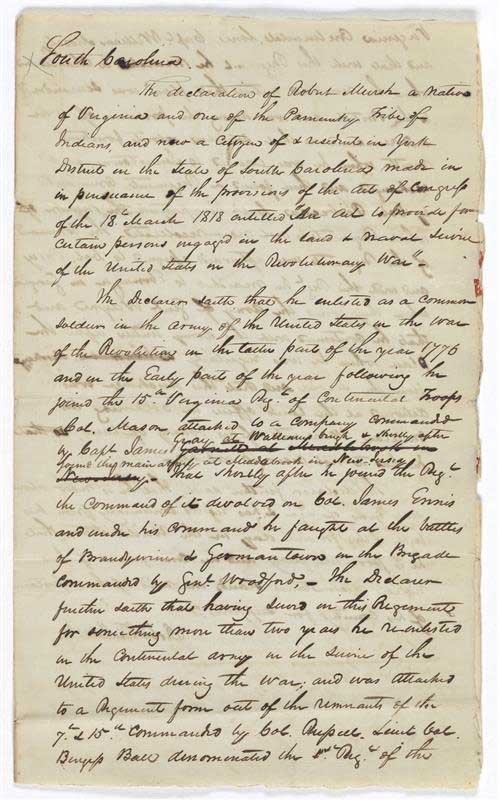 South Carolina
The declaration of Robert Mursh a native
of Virginia and one of the Pamunky Tribe of
Indians, and now a Citizen of & resident in York
District in the State of South Carolina made in
in pursuance of the provisions of the act of Congress
of the 18th March 1818 entitled "An act to provide for
certain persons engaged in the land & naval Service
of the United States in the Revolutionary War"
The Declarer saith that he enlisted as a Common
soldier in the army of the United States in the War
of the Revolution in the latter part of the year 1776
and in the Early part of the year following he
joined the 15th Virginia Regt of Continental Troops
Col. Mason attached to a Company commanded
by Capt James Gray at Williamsburgh & shortly after
joined the main army at Middlebrook in New Jersey
That Shortly after he joined the Regt
the Command of it devolved on Col. James Ennis
and under his command he faught at the battles
of Brandywine & Germantown in the Brigade
Commanded by Genl Woodford, – The Declarer
further saith that having served in this Regiment
for something more than two years he reenlisted
in the Continental army in the Service of the
United States during the war, and was attached
to a Regiment form out of the remnants of the
7th & 15th Commanded by Col. Russel. Lieut Col.
Burgess Ball denominated the Regt of the